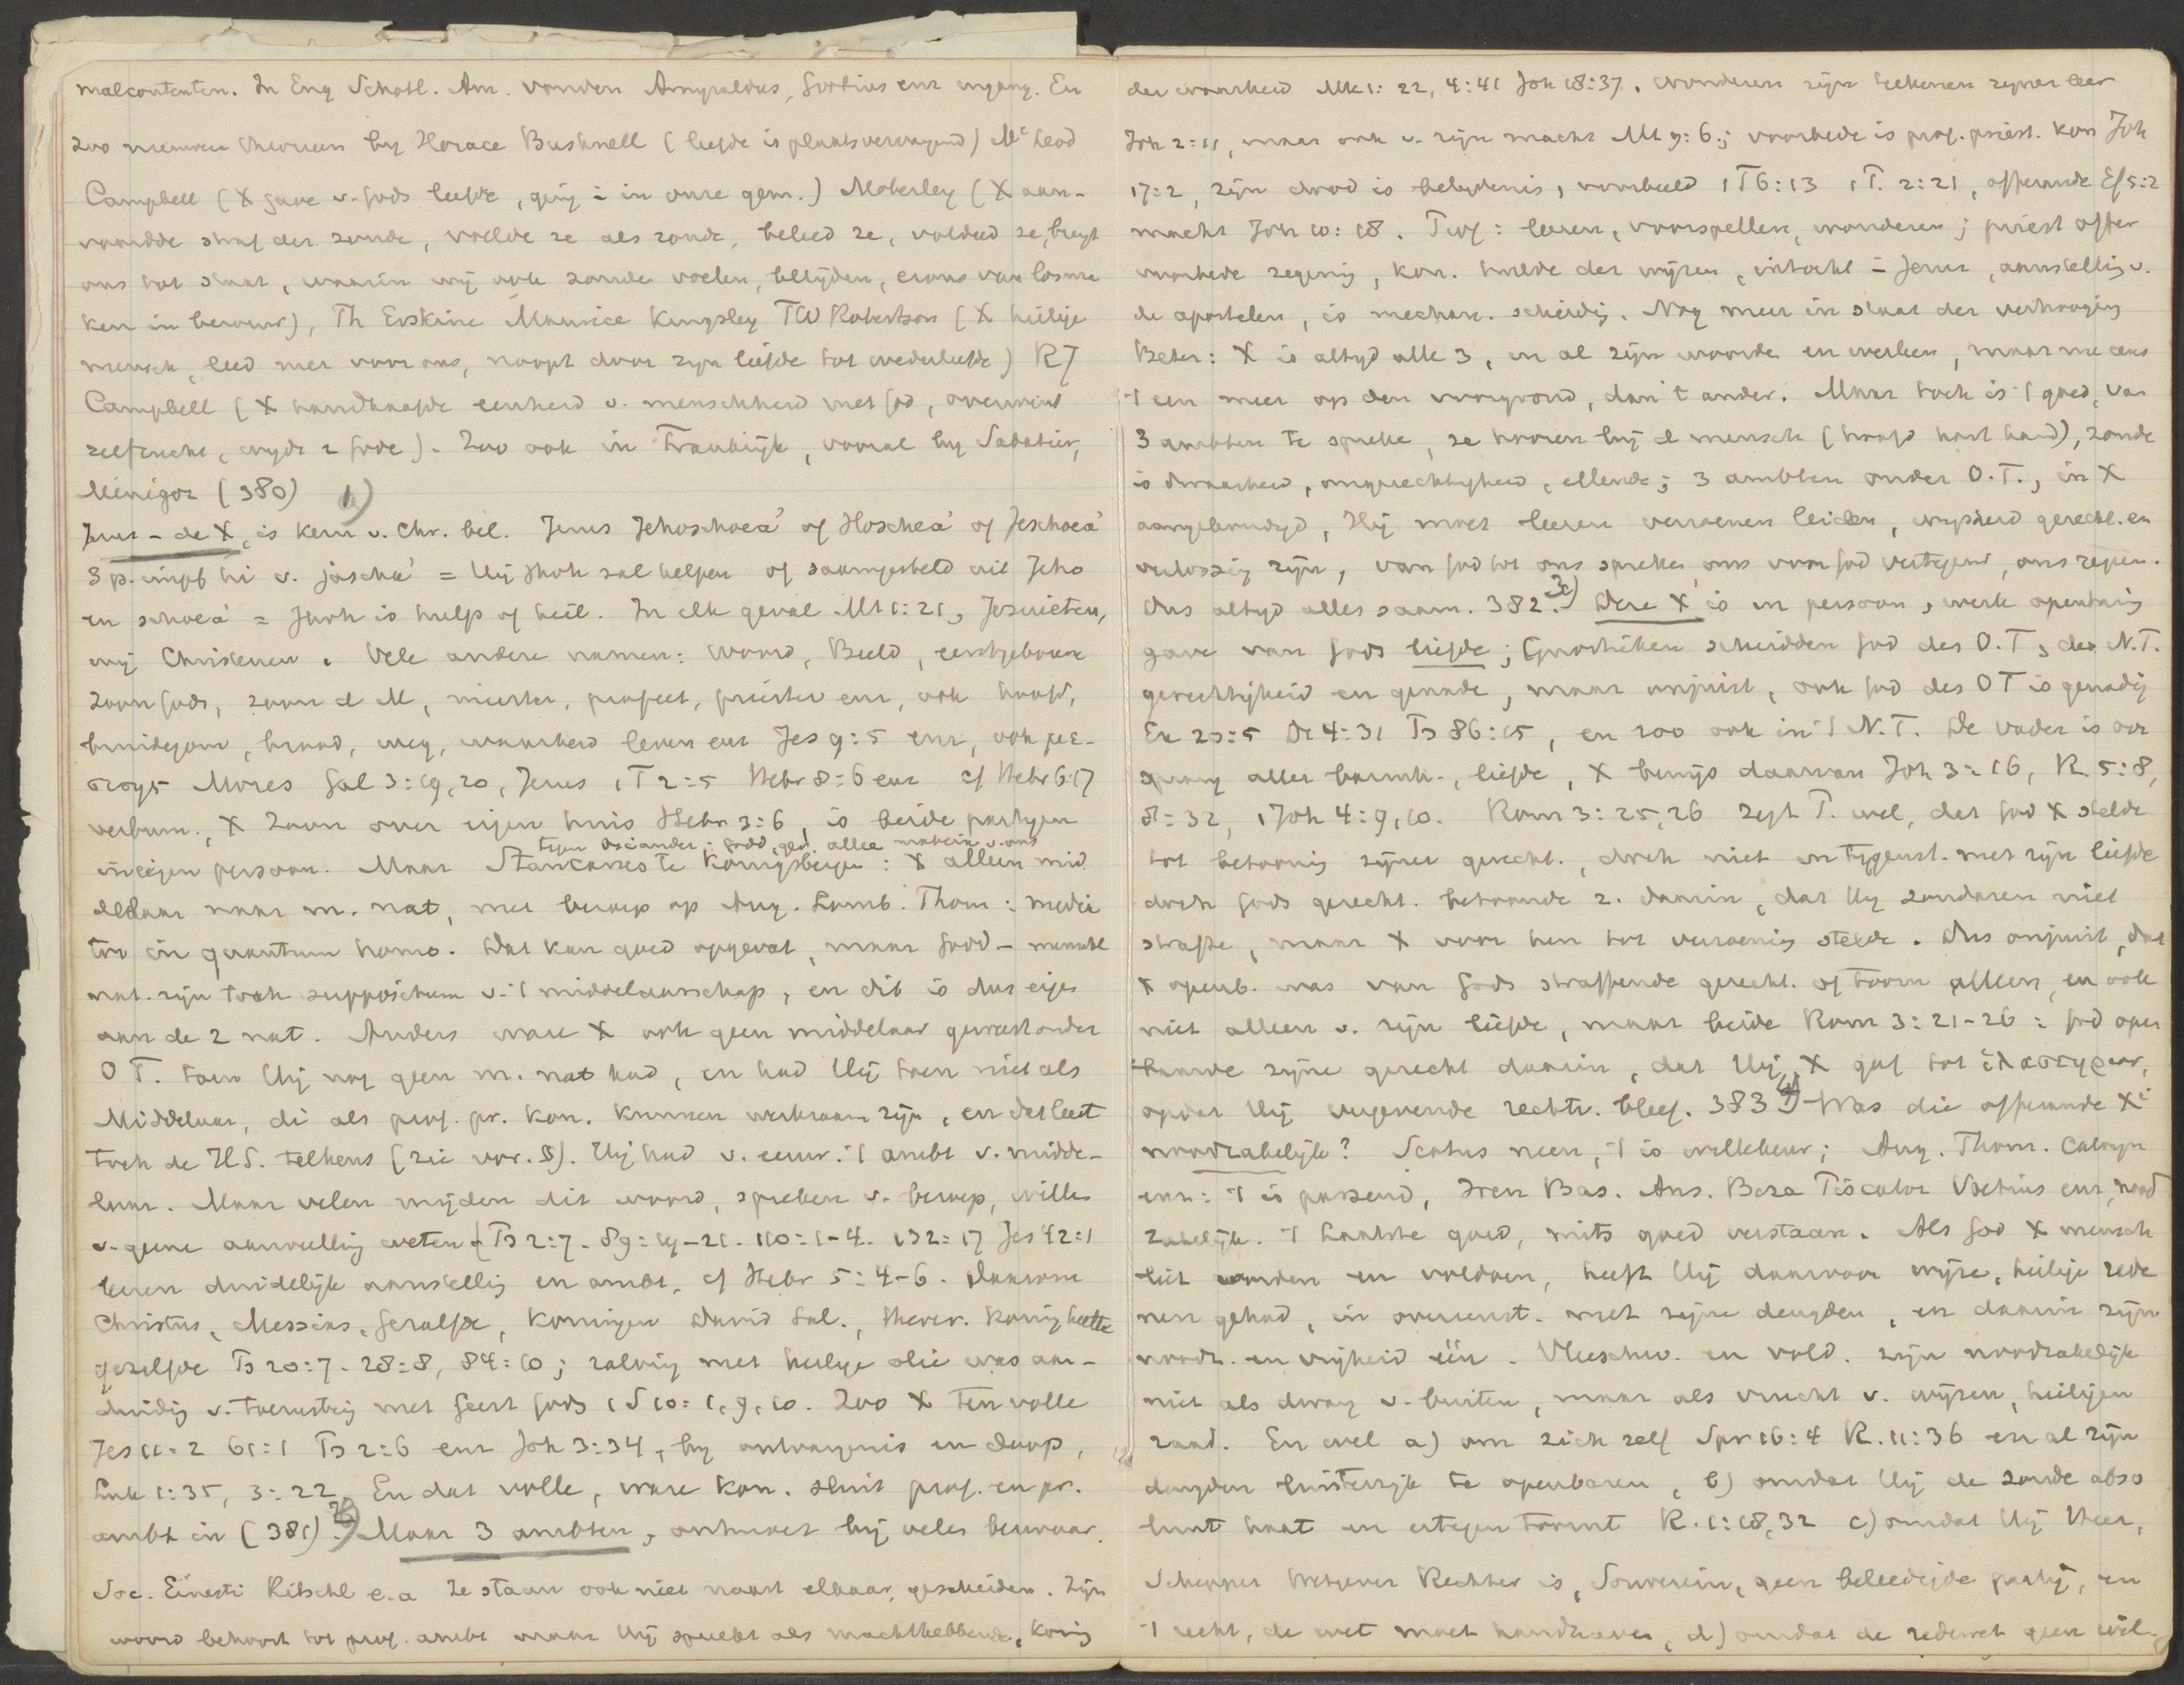 malcontenten. In Eng Schotl. Am. vonden Amyraldus, Grotius enz ingang. En
zoo nieuwere theorieen by Horace Bushnell (liefde is plaatsvervangend) Mc Leod
Campbell (X gave v. Gods liefde, ging in in onze gem.) Moberley (X aan-
vaardde straf der zonde, voelde ze als zonde, beleed ze, voldeed ze, brengt
ons tot staat, waarin wij ook zonde voelen, belijden, ervan los ma
ken in berouw), Th Erskine Maurice Kingsley FW Robertson (X heilige
mensch, leed met voor ons, noopt door zijn liefde tot wederliefde) RJ
Campbell (X handhaafde eenheid v. menschheid met God, overwint
zelfzucht, wijdt z Gode). Zoo ook in Frankrijk, vooral by Sabatier,
Ménégoz (380) 1)
Jezus - de X, is kern v. Chr. bel. Jezus Jehoschoea' of Hoschea' of Jeschoea'
3 p. impf hi v. jascha' = Hij Jhvh zal helpen of saamgesteld uit Jeho
en schoea' = Jhvh is hulp of heil. In elk geval Mt 1:21, Jezuieten,
wij Christenen. Vele andere namen: Woord, Beeld, eerstgeboren
Zoon Gods, zoon d M, meester, profeet, priester enz, ook hoofd,
bruidegom, brood, weg, waarheid leven enz Jes 9:5 enz, ook με-
σιτης Mozes Gal 3:19,20, Jezus 1 T 2:5 Hebr 8:6 enz cf Hebr 6:17
verbum. X Zoon over eigen huis Hebr 3:6, is beide partyen
tegen Osiander: Godd. ger. alleen materie v. ons
in eigen persoon. Maar Stancarus te Konigsbergen: X alleen mid
delaar naar m. nat, met beroep op Aug. Lomb. Thom: media
tor in quantum homo. Dat kan goed opgevat, maar Godd - mensche
nat. zijn toch suppositum v. 't middelaarschap, en dit is dus eigen
aan de 2 nat. Anders ware X ook geen middelaar geweest onder
O T. toen Hij nog geen m. nat had, en had Hij toen niet als
Middelaar, di als prof. pr. kon. kunnen werkzaam zijn, en dat leert
toch de H.S. telkens (zie vor. §). Hij had v. eeuw. 't ambt v. midde-
laar. Maar velen mijden dit woord, spreken v. beroep, willen
v. geene aanvulling weten (Ps 2:7. 89:19-21. 110:1-4. 132:17 Jes 42:1
leeren duidelijk aanstelling en ambt, cf Hebr 5:4-6. Daarom
Christus, Messias, Gezalfde, Koningen David Sal., theocr. Koning heette
gezalfde Ps 20:7. 28:8, 84:10; zalving met heilige olie was aan-
duiding v. toerusting met Geest Gods 1 S 10:1, 9, 10. Zoo X ten volle
Jes 11:2 61:1 Ps 2:6 enz Joh 3:34, by ontvangenis en doop,
Luk 1:35, 3:22. En dat volle, ware kon. sluit prof. en pr.
ambt in (381). 2) Maar 3 ambten, ontmoet bij velen bezwaar.
Soc. Ernesti Ritschl e.a Ze staan ook niet naast elkaar, gescheiden. Zijn
woord behoort tot prof. ambt maar Hij spreekt als machthebbende, Koning
der waarheid Mk 1:22, 4:41 Joh 18:37. wonderen zijn teekenen zyner leer
Joh 2:11, maar ook v. zijn macht Mt 9:6; voorbede is prof. priest. kon Joh
17:2, zijn dood is belydenis, voorbeeld 1 T 6:13 1 P. 2:21, offerande Ef 5:2
macht Joh 10:18. Prof: leeren, voorspellen, wonderen; priest offer
voorbede zegening, kon. hulde der wijzen, intocht in Jeruz, aanstelling v.
de apostelen, is mechan. scheiding. Nog meer in staat der verhooging
Beter: X is altyd alle 3, in al zijn woorden en werken, maar nu eens
't een meer op den voorgrond, dan 't ander. Maar toch is 't goed, van
3 ambten te spreken, ze hooren bij d mensch (hoofd hart hand), zonde
is dwaasheid, ongerechtigheid, ellende; 3 ambten onder O.T., in X
aangekondigd, Hij moet leeren verzoenen leiden, wijsheid gerecht. en
verlossing zijn, van God tot ons spreken, ons voor God vertegenw, ons regeer.
Dus altyd alles saam. 382. 3) Deze X is in persoon, werk openbaring
gave van Gods liefde; Gnostieken scheidden God des O.T, des N.T.
gerechtigheid en genade, maar onjuist, ook God des OT is genadig
Ex 20:5 Dt 4:31 Ps 86:15, en zoo ook in 't N.T. De Vader is oor
sprong aller barmh., liefde, X bewijs daarvan Joh 3:16, R. 5:8,
8:32, 1 Joh 4:9, 10. Rom 3:25,26 zegt P. wel, dat God X stelde
tot betooning zijner gerecht., doch niet in tegenst. met zijn liefde
doch Gods gerecht. betoonde z. daarin, dat Hij zondaren niet
strafte, maar X voor hen tot verzoening stelde. Dus onjuist, dat
X openb. was van Gods straffende gerecht. of toorn alleen, en ook
niet alleen v. zijn liefde, maar beide Rom 3:21-26: God open
baarde zijne gerecht daarin, dat Hij X gaf tot ἱλαστηριον,
opdat Hij vergevende rechtv. bleef. 383. 4) Was die offerande Xi
noodzakelijk? Scotus neen, 't is willekeur; Aug. Thom. Calvijn
enz: 't is passend, Iren Bas. Ans. Beza Piscator Voetius enz, nood
zakelijk. 't Laatste goed, mits goed verstaan. Als God X mensch
liet worden en voldoen, heeft Hij daarvoor wijze, heilige rede
nen gehad, in overeenst. met zijne deugden, en daarin zijn
noodz. en vrijheid één. Vleeschw. en vold. zijn noodzakelijk
niet als dwang v. buiten, maar als vrucht v. wijzen, heiligen
raad. En wel a) om zich zelf Spr 16:4 R. 11:36 en al zijn
deugden luisterrijk te openbaren, b) omdat Hij de zonde abso
luut haat en ertegen toornt R. 1:18,32 c) omdat Hij Heer,
Schepper Wetgever Rechter is, Souverein, geen beleedigde partij, en
't recht, de wet moet handhaven, d) omdat de zedewet geen wil-